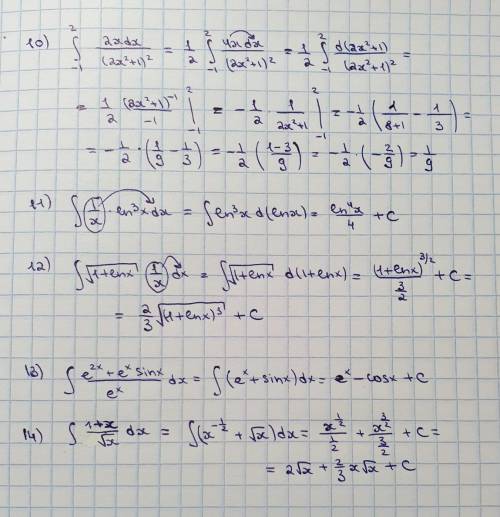 10) ∫₋₁² 2xdx/(2x²+1)² = 1/2 ∫₋₁² 4x dx/(2x²+1)² = 1/2 ∫₋₁² d(2x²+1)/(2x²+1)² =
= 1/2 (2x²+1)⁻¹/-1 |₋₁² = -1/2 · 1/(2x²+1) |₋₁² = -1/2 (1/(8+1) - 1/3) =
= -1/2 · (1/9 - 1/3) = -1/2 ((1-3)/9) = -1/2 · (-2/9) = 1/9
11) ∫ 1/x · ln³x dx = ∫ ln³x d(lnx) = ln⁴x/4 + C
12) ∫ √(1+lnx) (1/x) dx = ∫ √(1+lnx) d(1+lnx) = (1+lnx)^(3/2)/(3/2) + C =
= 2/3 √((1+lnx)³) + C
13) ∫ (e²ˣ + eˣ sinx)/eˣ dx = ∫ (eˣ + sinx) dx = eˣ - cosx + C
14) ∫ (1+x)/√x dx = ∫ (x^(-1/2) + √x) dx = x^(1/2)/(1/2) + x^(3/2)/(3/2) + C =
= 2√x + 2/3 x√x + C